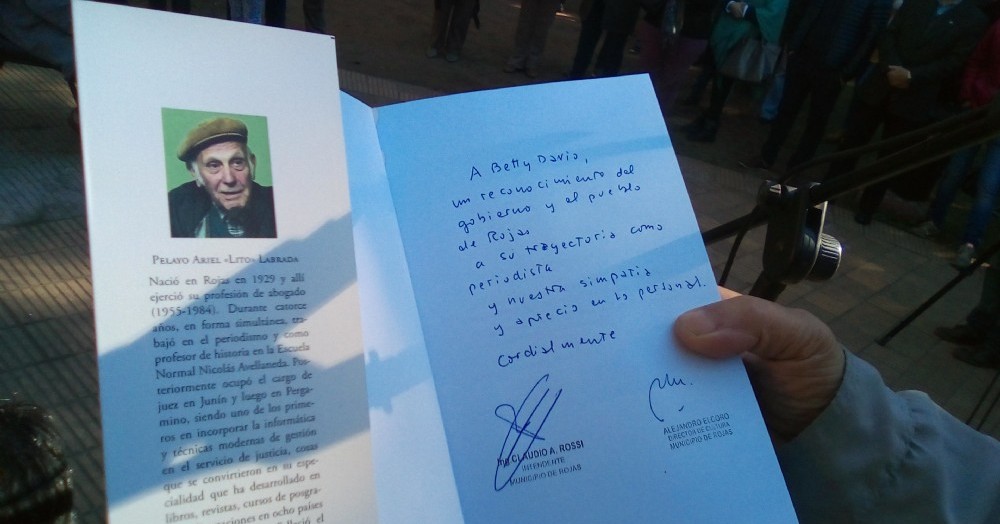 PELAYO ARIEL «LITO» LABRADA
Nació en Rojas en 1929 y allí
ejerció su profesión de abogado
(1955-1984). Durante catorce
años, en forma simultánea, tra-
bajó en el periodismo y como
profesor de historia en la Escuela
Normal Nicolás Avellaneda. Pos-
teriormente ocupó el cargo de
juez en Junín y luego en Perga-
mino, siendo uno de los prime-
ros en incorporar la informática
y técnicas modernas de gestión
en el servicio de justicia, cosas
que se convirtieron en su espe-
cialidad que ha desarrollado en
libros, revistas, cursos de posgra-
en ocho países
el
A Betty Davio,
un reconocimiento del
gobierno y el pueblo
de Rojas
a su trayectoria como
periodista
y nuestra simpatia
y aprecio en lo personal.
Cordialmente
CLAUDIO A. ROSSI
INTENDENTE
MUNICIPIO DE ROJAS
ALEJANDRO ELCORO
DIRECTOR DE CULTURA
MUNICIPIO DE ROJAS